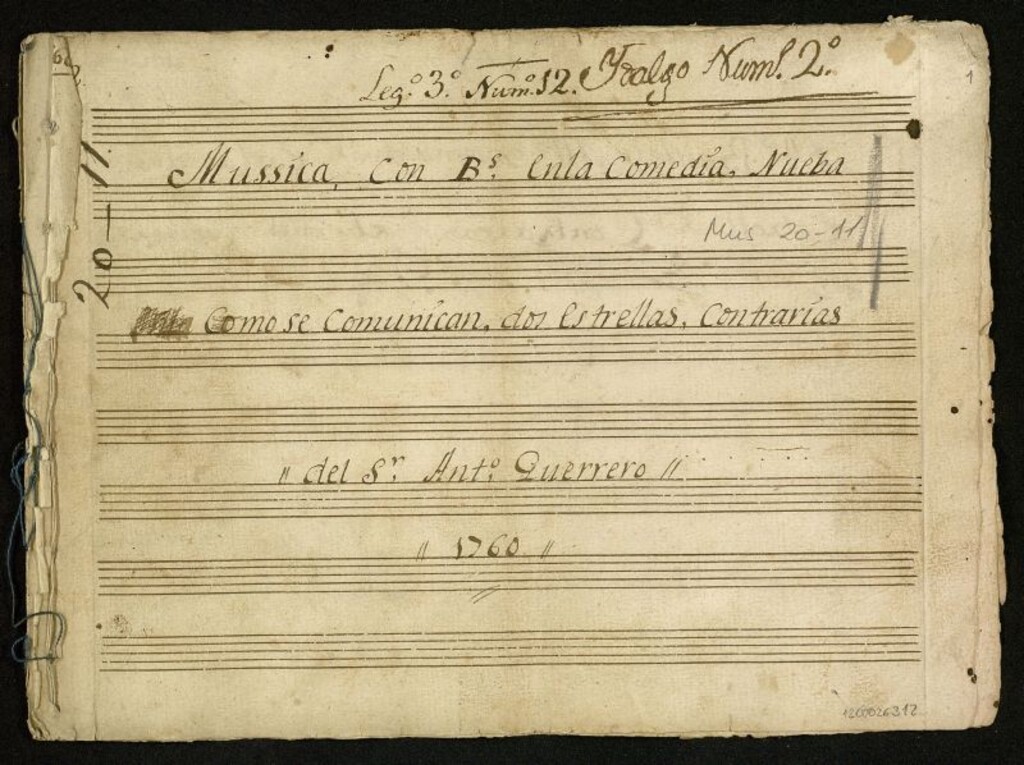 Leg.º 3.º Num.º 12. Fralgo Num.º 2.º
1
Mussica, Con Bs. Enla Comedia, Nueba
Mus 20-11
20-11
Como se Comunican, dos Estrellas, Contrarias
" del Sr. Ant.º Guerrero "
" 1760 "
1200026312